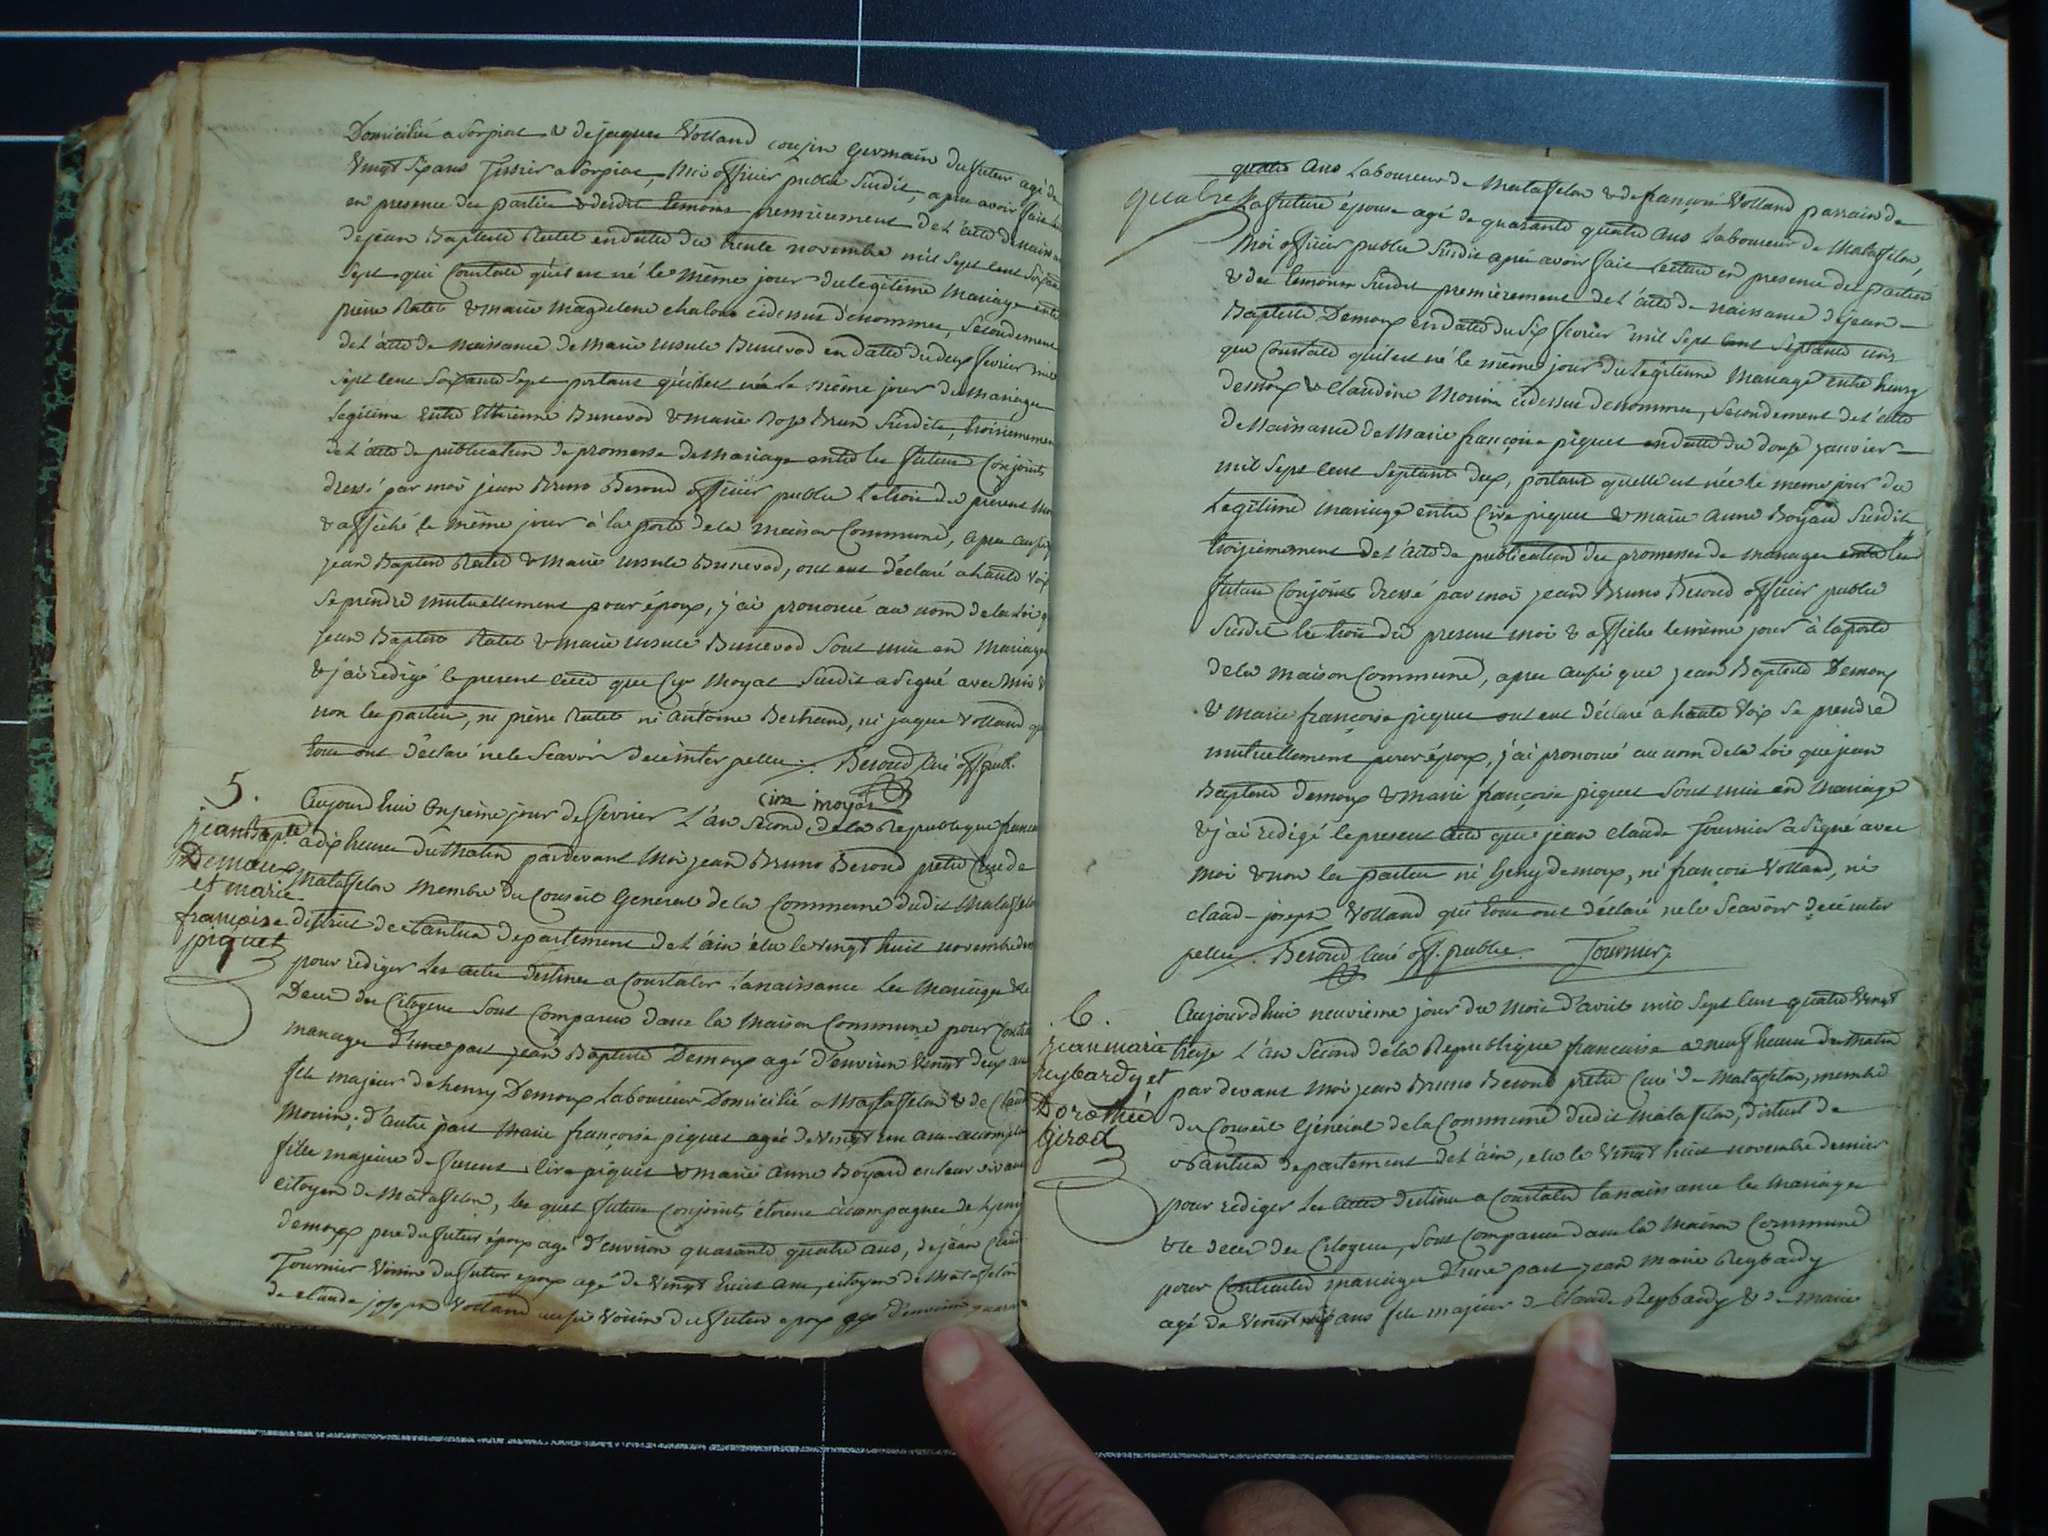 Domicilié a Corpiat & de jaque Volland cousin germain du futur agé de
Vingt six ans a Corpiat, Moi officier public Susdit, apres avoir fait
en presence des parties & desdits temoins premierement de l'acte de naissance
de jean Baptiste Ratet en datte du trente novembre mil sept cent soixante
sept qui Constate qu'il est né le même jour du légitime Mariage entre
pierre Ratet & marie magdelene chalon cidessus dénommés, secondement
de l'acte de naissance de marie ursule Bunevod en datte du deux fevrier mil
sept cent soixante sept portant qu'elle est née le même jour du Mariage
légitime entre Ethienne Bunevod & marie Rose Brun Susdits, troisiemement
de l'acte de publication de promesse de Mariage entre les futurs Conjoints
dressé par moi jean Bruno Beroud officier public le trois du present Mois
& affiché le même jour à la porte de la maison Commune, apres aussi
jean Baptiste Ratet & Marie ursule Bunevod, ont eut déclaré a haute voix
se prendre mutuellement pour époux, j'ai prononcé au nom de la Loi q
jean Baptiste Ratet & marie ursule Bunevod sont unis en Mariage
& j'ai rédigé le present acte que Moyat Susdit a signé avec Moi &
non les parties, ni pierre Ratet ni Antoine Bertrand, ni jaque Volland qui
tous ont déclaré ne le scavoir de ce interpellés. Beroud Curé off. publ.
cira moyat
5.
jean Bapte
Demoux
et marie
francoise
piquet
Aujourd'hui onzieme jour de fevrier l'an second de la Republique francaise
a dix heures du matin pardevant Moi jean Bruno Beroud pretre Curé de
Matafelon Membre du Conseil General de la Commune dudit Matafelon
district de Nantua departement de l'ain élu le vingt huit novembre dernier
pour rediger les actes destinés a Constater la naissance les Mariages & le
Deces des Citoyens sont Comparus dans la Maison Commune pour Contracter
mariage d'une part jean Baptiste Demoux agé d'environ vingt deux ans
fils majeur de henry Demoux Laboureur Domicilié a Matafelon & de Claudine
Monin; d'autre part Marie françoise piquet agée de vingt un ans accomplis
fille majeure de furent piquet & marie Anne Boyard en leur vivant
Citoyens de Matafelon, les quels futurs Conjoints étoient accompagnés de henry
demoux pere du futur époux agé d'environ quarante quatre ans, de jean Claude
Fournier voisin du futur epoux agé de vingt huit ans, citoyen de Matafelon
de claude joseph Volland aussi voisin du futur epoux agé d'environ quarante
quatre ans Laboureur de Matafelon & de françois Volland parrain de
quatre la future épouse agé de quarante quatre ans laboureur de Matafelon,
Moi officier public Susdit après avoir fait lecture en presence des parties
& des temoins Susdits premièrement de l'acte de naissance de jean
Baptiste Demoux en datte du six fevrier mil sept cent septante un
qui Constate qu'il est né le même jour du légitime Mariage entre henry
demoux & Claudine Monin cidessus denommés, secondement de l'acte
de Naissance de Marie françoise piquet en datte du douze janvier
mil sept cent septante deux, portant quelle est née le meme jour du
Légitime mariage entre piquet & marie Anne Boyard Susdits
troisiemement de l'acte de publication des promesses de mariage entre les
futurs Conjoints dressé par moi jean Bruno Beroud officier public
Susdit le trois du present mois & affiché le même jour à la porte
de la maison Commune, apres aussi que jean Baptiste Demoux
& marie françoise piquet ont eut déclaré a haute voix se prendre
mutuellement pour époux, j'ai prononcé au nom de la Loi que jean
Baptiste demoux & marie françoise piquet sont unis en Mariage
& j'ai rédigé le present acte que jean claude fournier a signé avec
moi & non les parties ni henry demoux, ni françois Volland, ni
claud-joseph Volland qui tous ont déclaré ne le scavoir de ce inter
pellés. Beroud Curé off. public. Fournier
6.
jean marie
reybardy et
Dorothée
Girod
Aujourd'hui neuvième jour du mois d'avril mil sept cent quatre vingt
treize l'an second de la Republique francaise a neuf heures du Matin
par devant moi jean Bruno Beroud prêtre Curé de Matafelon, membre
du Conseil Général de la Commune dudit Matafelon, district de
Nantua departement de l'ain, elu le vingt huit novembre dernier
pour rediger les actes destinés a Constater la naissance les Mariages
& le deces des Citoyens, sont Comparus dans la Maison Commune
pour Contracter mariage d'une part jean marie Reybardy
agé de vingt ans fils majeur de Claude Reybardy & de marie